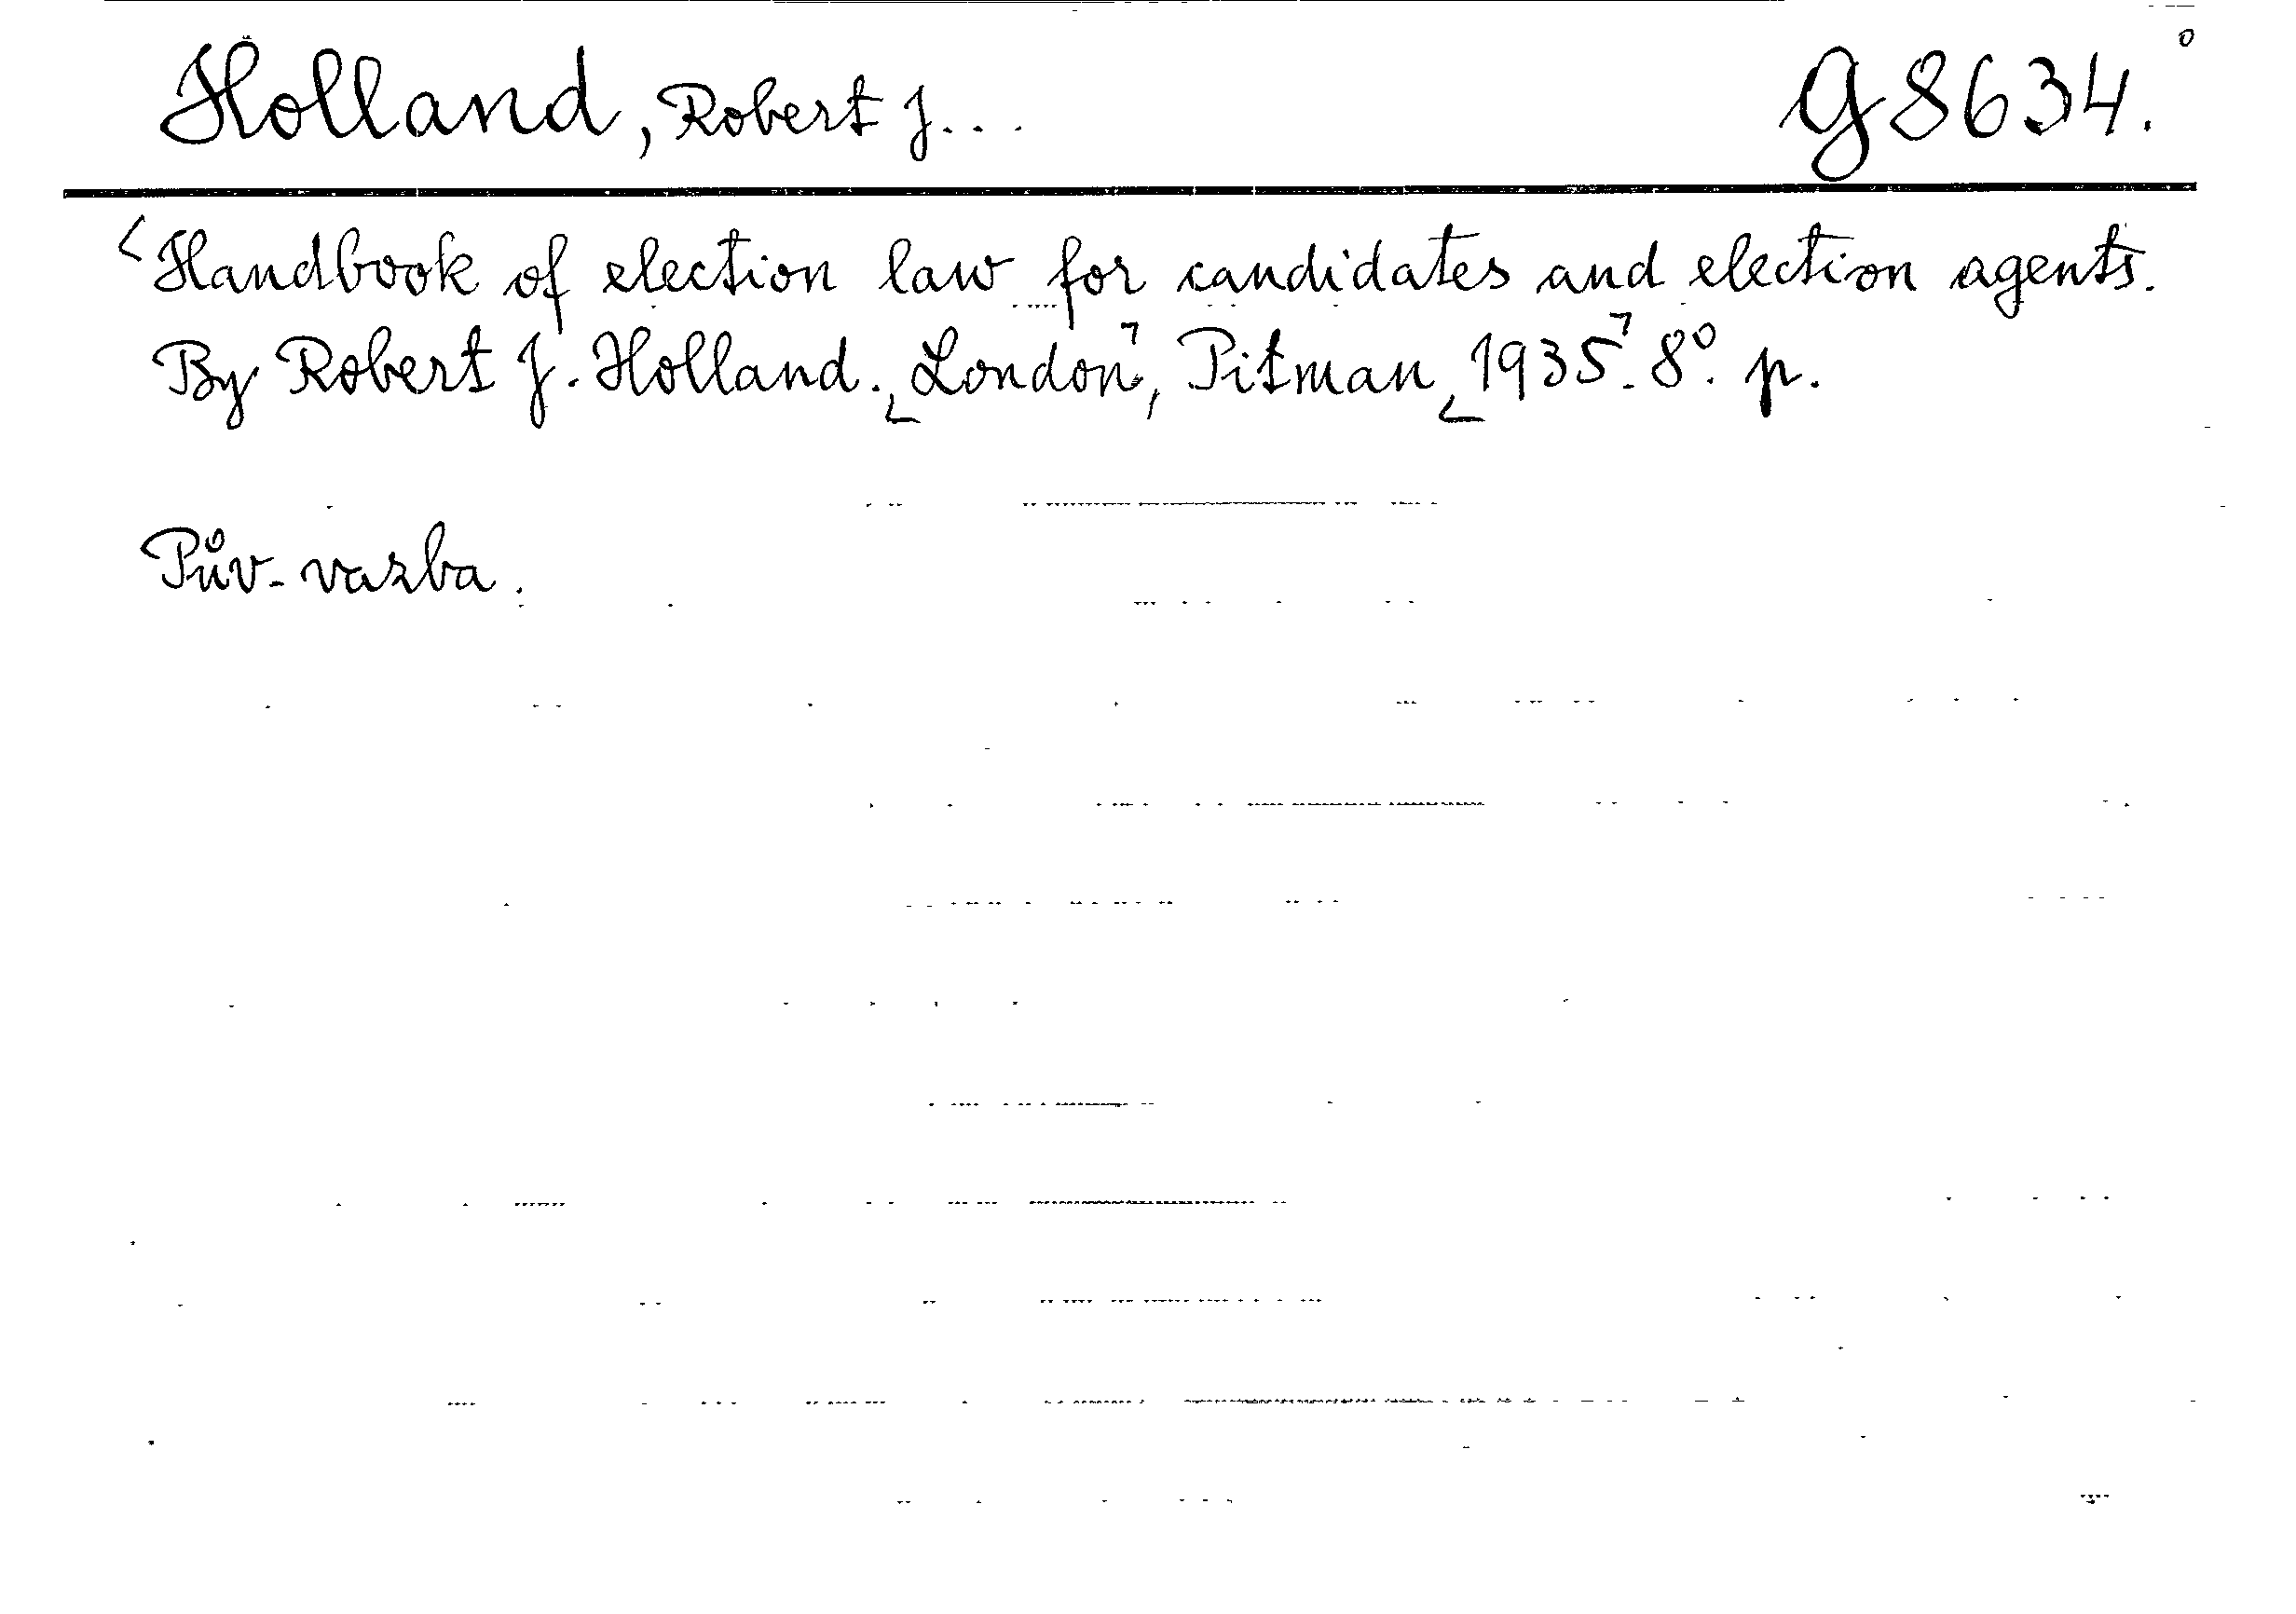 Holland, Robert J... G 8634.
Handbook of election law for candidates and election agents.
By Robert J. Holland. London, Pitman 1935. 8° p.
Pův. vazba.